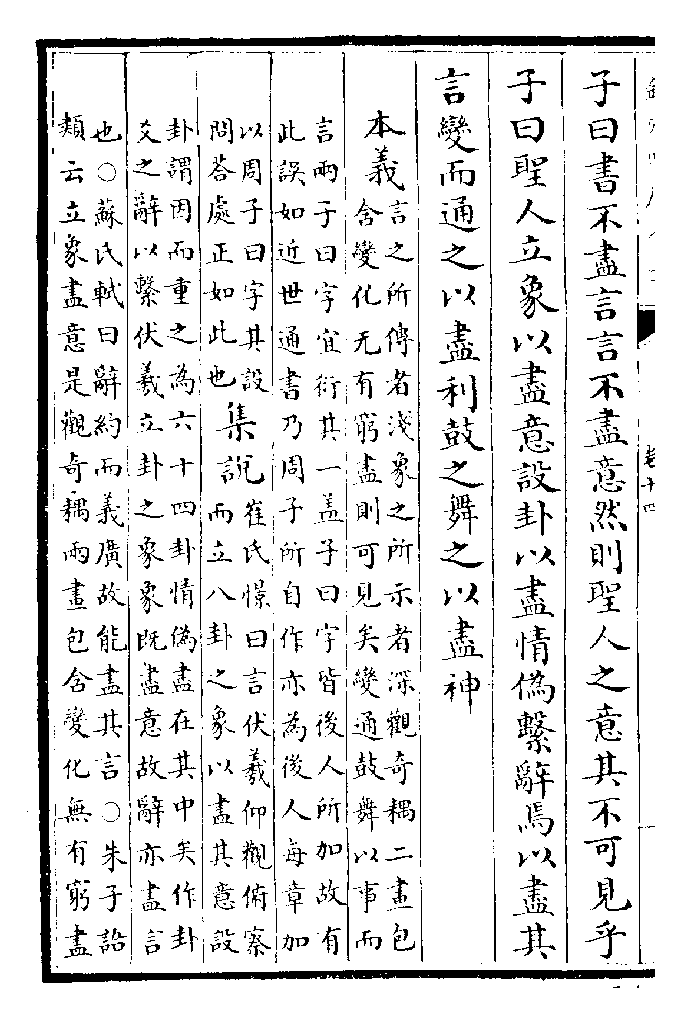 卷十四
子曰書不盡言言不盡意然則聖人之意其不可見乎
子曰聖人立象以盡意設卦以盡情偽繫辭焉以盡其
言變而通之以盡利鼓之舞之以盡神
本義
言之所傳者淺象之所示者深觀奇耦二畫包
含變化无有窮盡則可見矣變通鼓舞以事而
言兩子曰字宜衍其一盖子曰字皆後人所加故有
此誤如近世通書乃周子所自作亦為後人每章加
以周子曰字其設
問答處正如此也
集説
崔氏憬曰言伏羲仰觀俯察
而立八卦之象以盡其意設
卦謂因而重之為六十四卦情偽盡在其中矣作卦
爻之辭以繫伏羲立卦之象象既盡意故辭亦盡言
也○蘇氏軾曰辭約而義廣故能盡其言○朱子語
類云立象盡意是觀奇耦兩畫包含變化無有窮盡